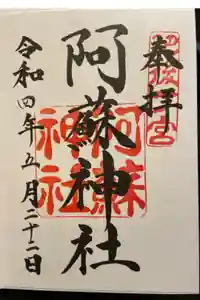 奉拝
阿蘇神社
阿蘇
神社
令和四年五月二十二日